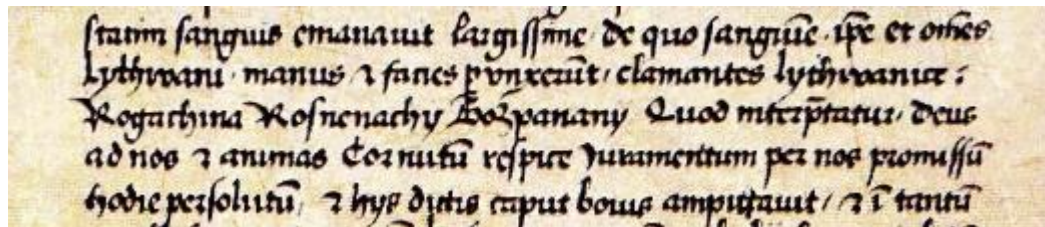 statim sanguis emanauit largissime. de quo sanguīe ip̄e et om̄es
lythwani. manus ⁊ facies ꝑvnxerūt / clamantes lythwanice :
Rogachina Rosnenachy Gospanany Quod interp̄tatur. deus
ad nos ⁊ animas Cornutū respice Juramentum per nos promissū
hodie persolutū, ⁊ hys dictis caput bouis amputauit / ⁊ ī tantū